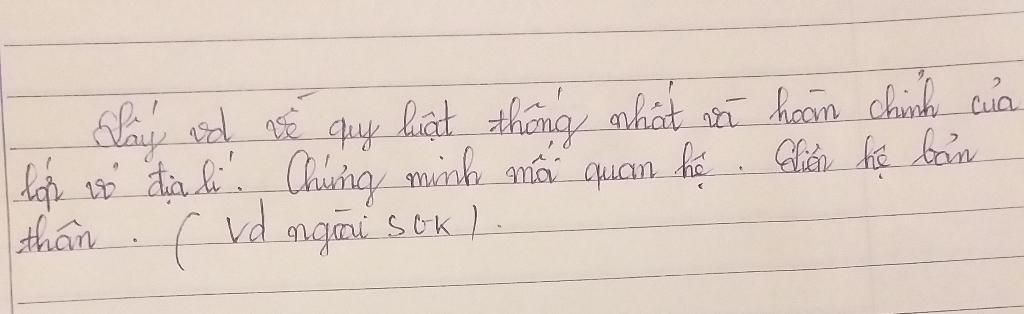 Lấy vd về quy luật thống nhất và hoàn chỉnh của
lớp vỏ địa lí. Chứng minh mối quan hệ. Liên hệ bản
thân. ( Vd ngoài SGK ).